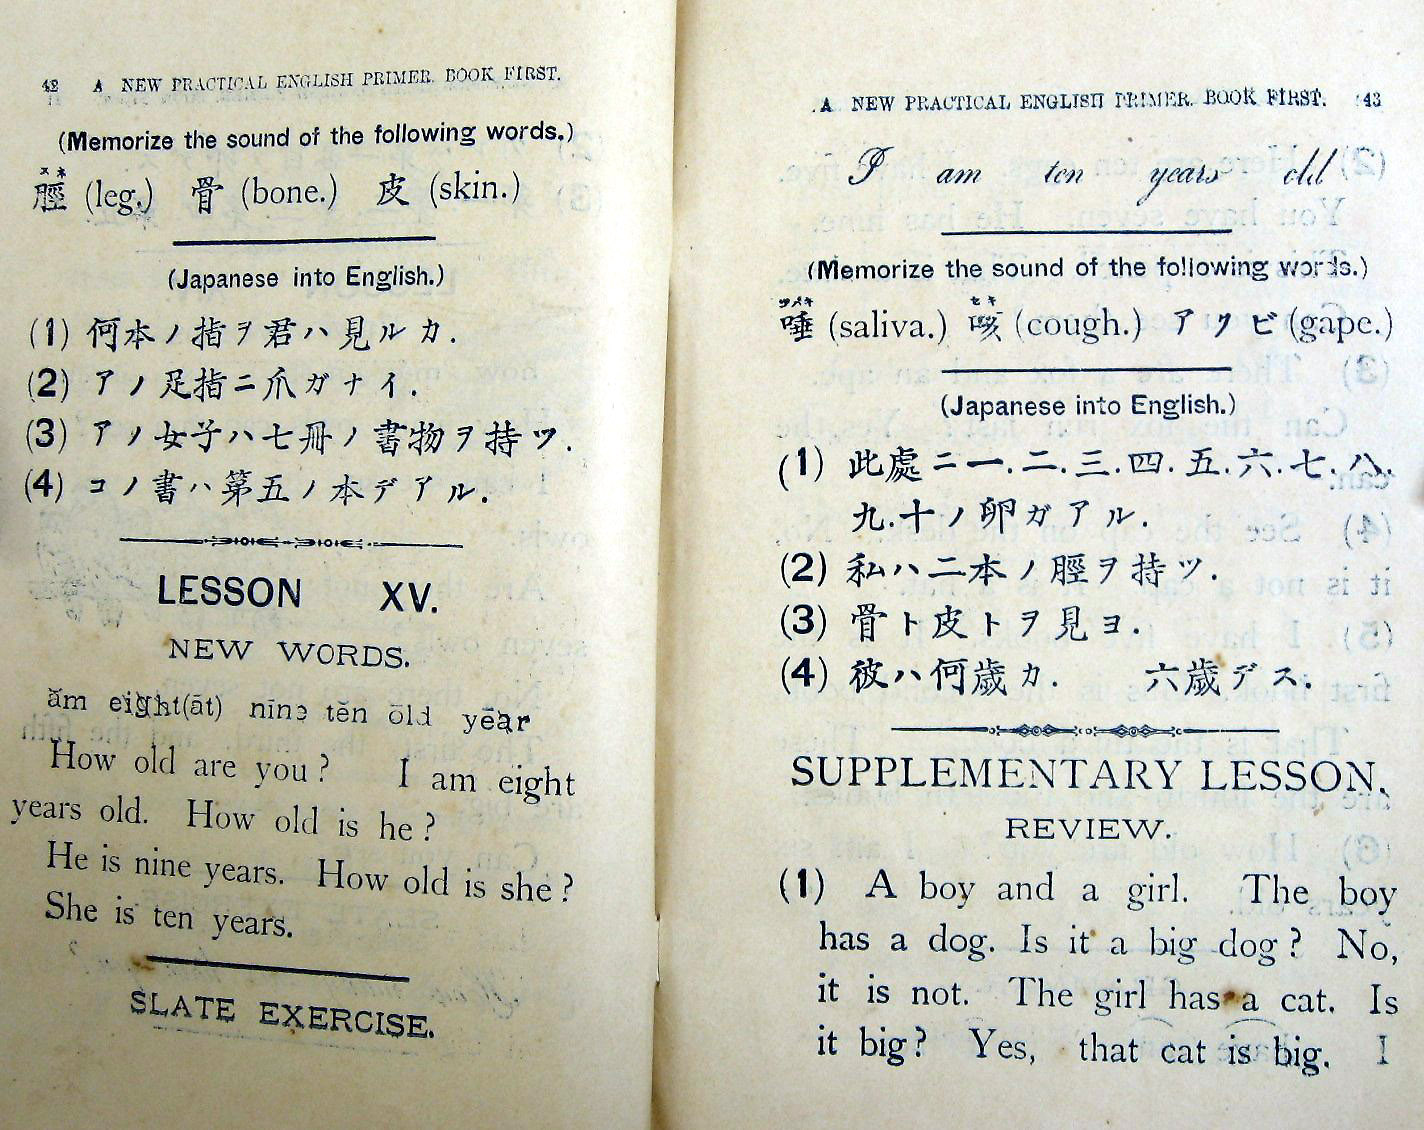 42 A NEW PRACTICAL ENGLISH PRIMER. BOOK FIRST.
(Memorize the sound of the following words.)
スネ
脛 (leg.) 骨 (bone.) 皮 (skin.)
(Japanese into English.)
(1) 何本ノ指ヲ君ハ見ルカ.
(2) アノ足指ニ爪ガナイ.
(3) アノ女子ハ七冊ノ書物ヲ持ツ.
(4) コノ書ハ第五ノ本デアル.
LESSON XV.
NEW WORDS.
ăm eight(āt) nīne tĕn ōld yēar
How old are you? I am eight
years old. How old is he?
He is nine years. How old is she?
She is ten years.
SLATE EXERCISE.
A NEW PRACTICAL ENGLISH PRIMER. BOOK FIRST. 43
I am ten years old
(Memorize the sound of the following words.)
ツバキ セキ
唾 (saliva.) 咳 (cough.) アクビ (gape.)
(Japanese into English.)
(1) 此處ニ一.二.三.四.五.六.七.八.
九.十ノ卵ガアル.
(2) 私ハ二本ノ脛ヲ持ツ.
(3) 骨ト皮トヲ見ヨ.
(4) 彼ハ何歳カ. 六歳デス.
SUPPLEMENTARY LESSON.
REVIEW.
(1) A boy and a girl. The boy
has a dog. Is it a big dog? No,
it is not. The girl has a cat. Is
it big? Yes, that cat is big. I